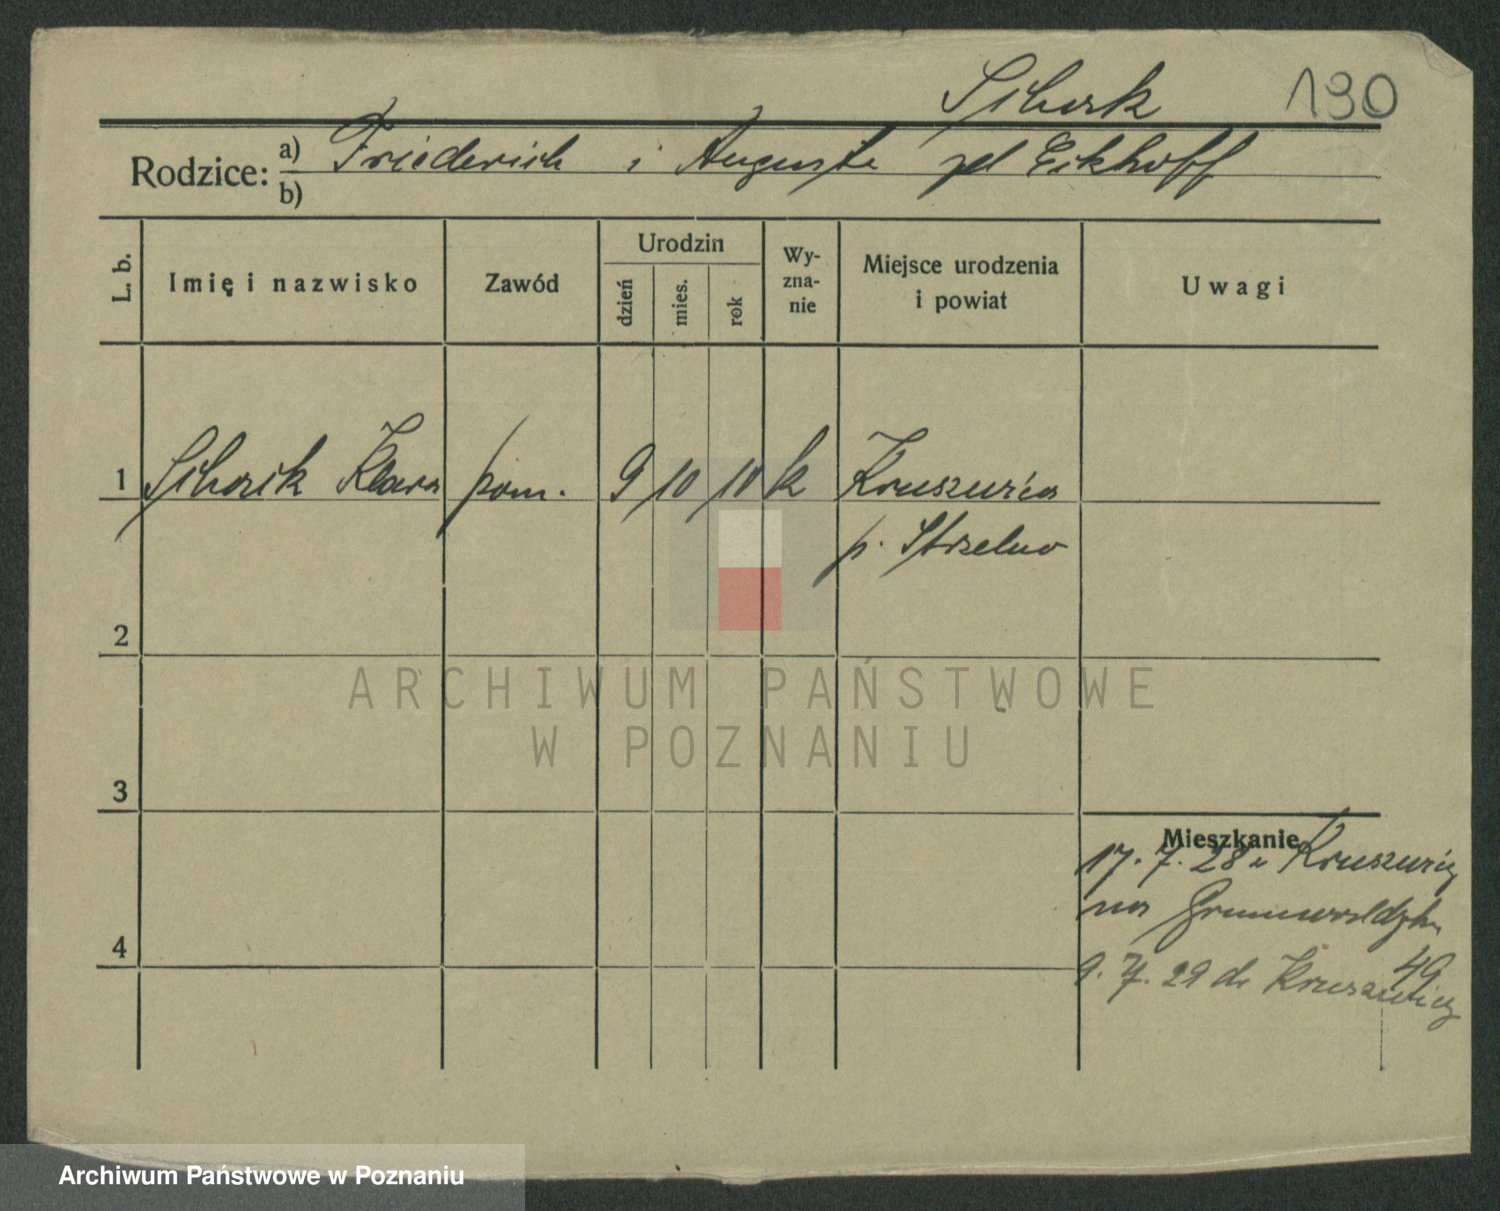 190
Rodzice: a) Friederich i Auguste zd Eikhoff
b)
L. b.
Imię i nazwisko
Zawód
Urodzin
dzień
mies.
rok
Wy-
zna-
nie
Miejsce urodzenia
i powiat
Uwagi
1 Klara pom. 9 10 10 k Kruszwica
p. Strzelno
2
3
4
Mieszkanie
17. 7. 28 z Kruszwicy
na Grunwaldzka
49
9. 7. 29 do Kruszwicy
ARCHIWUM PAŃSTWOWE
W POZNANIU
Archiwum Państwowe w Poznaniu